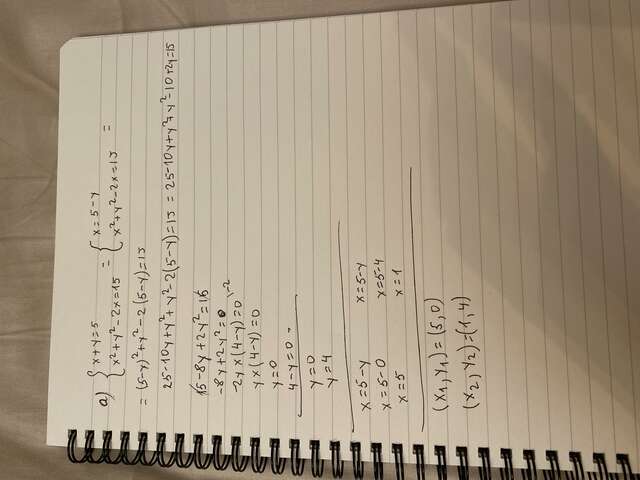 a) { x+y=5 = { x=5-y
{ x²+y²-2x=15 { x²+y²-2x=15 =
= (5-y)²+y²-2(5-y)=15
25-10y+y²+y²-2(5-y)=15 = 25-10y+y²+y²-10+2y=15
15-8y+2y²=15
-8y+2y²=0
-2y×(4-y)=0 \-2
y×(4-y)=0
y=0
4-y=0
y=0
y=4
x=5-y x=5-y
x=5-0 x=5-4
x=5 x=1
(x1,y1)=(5,0)
(x2,y2)=(1,4)